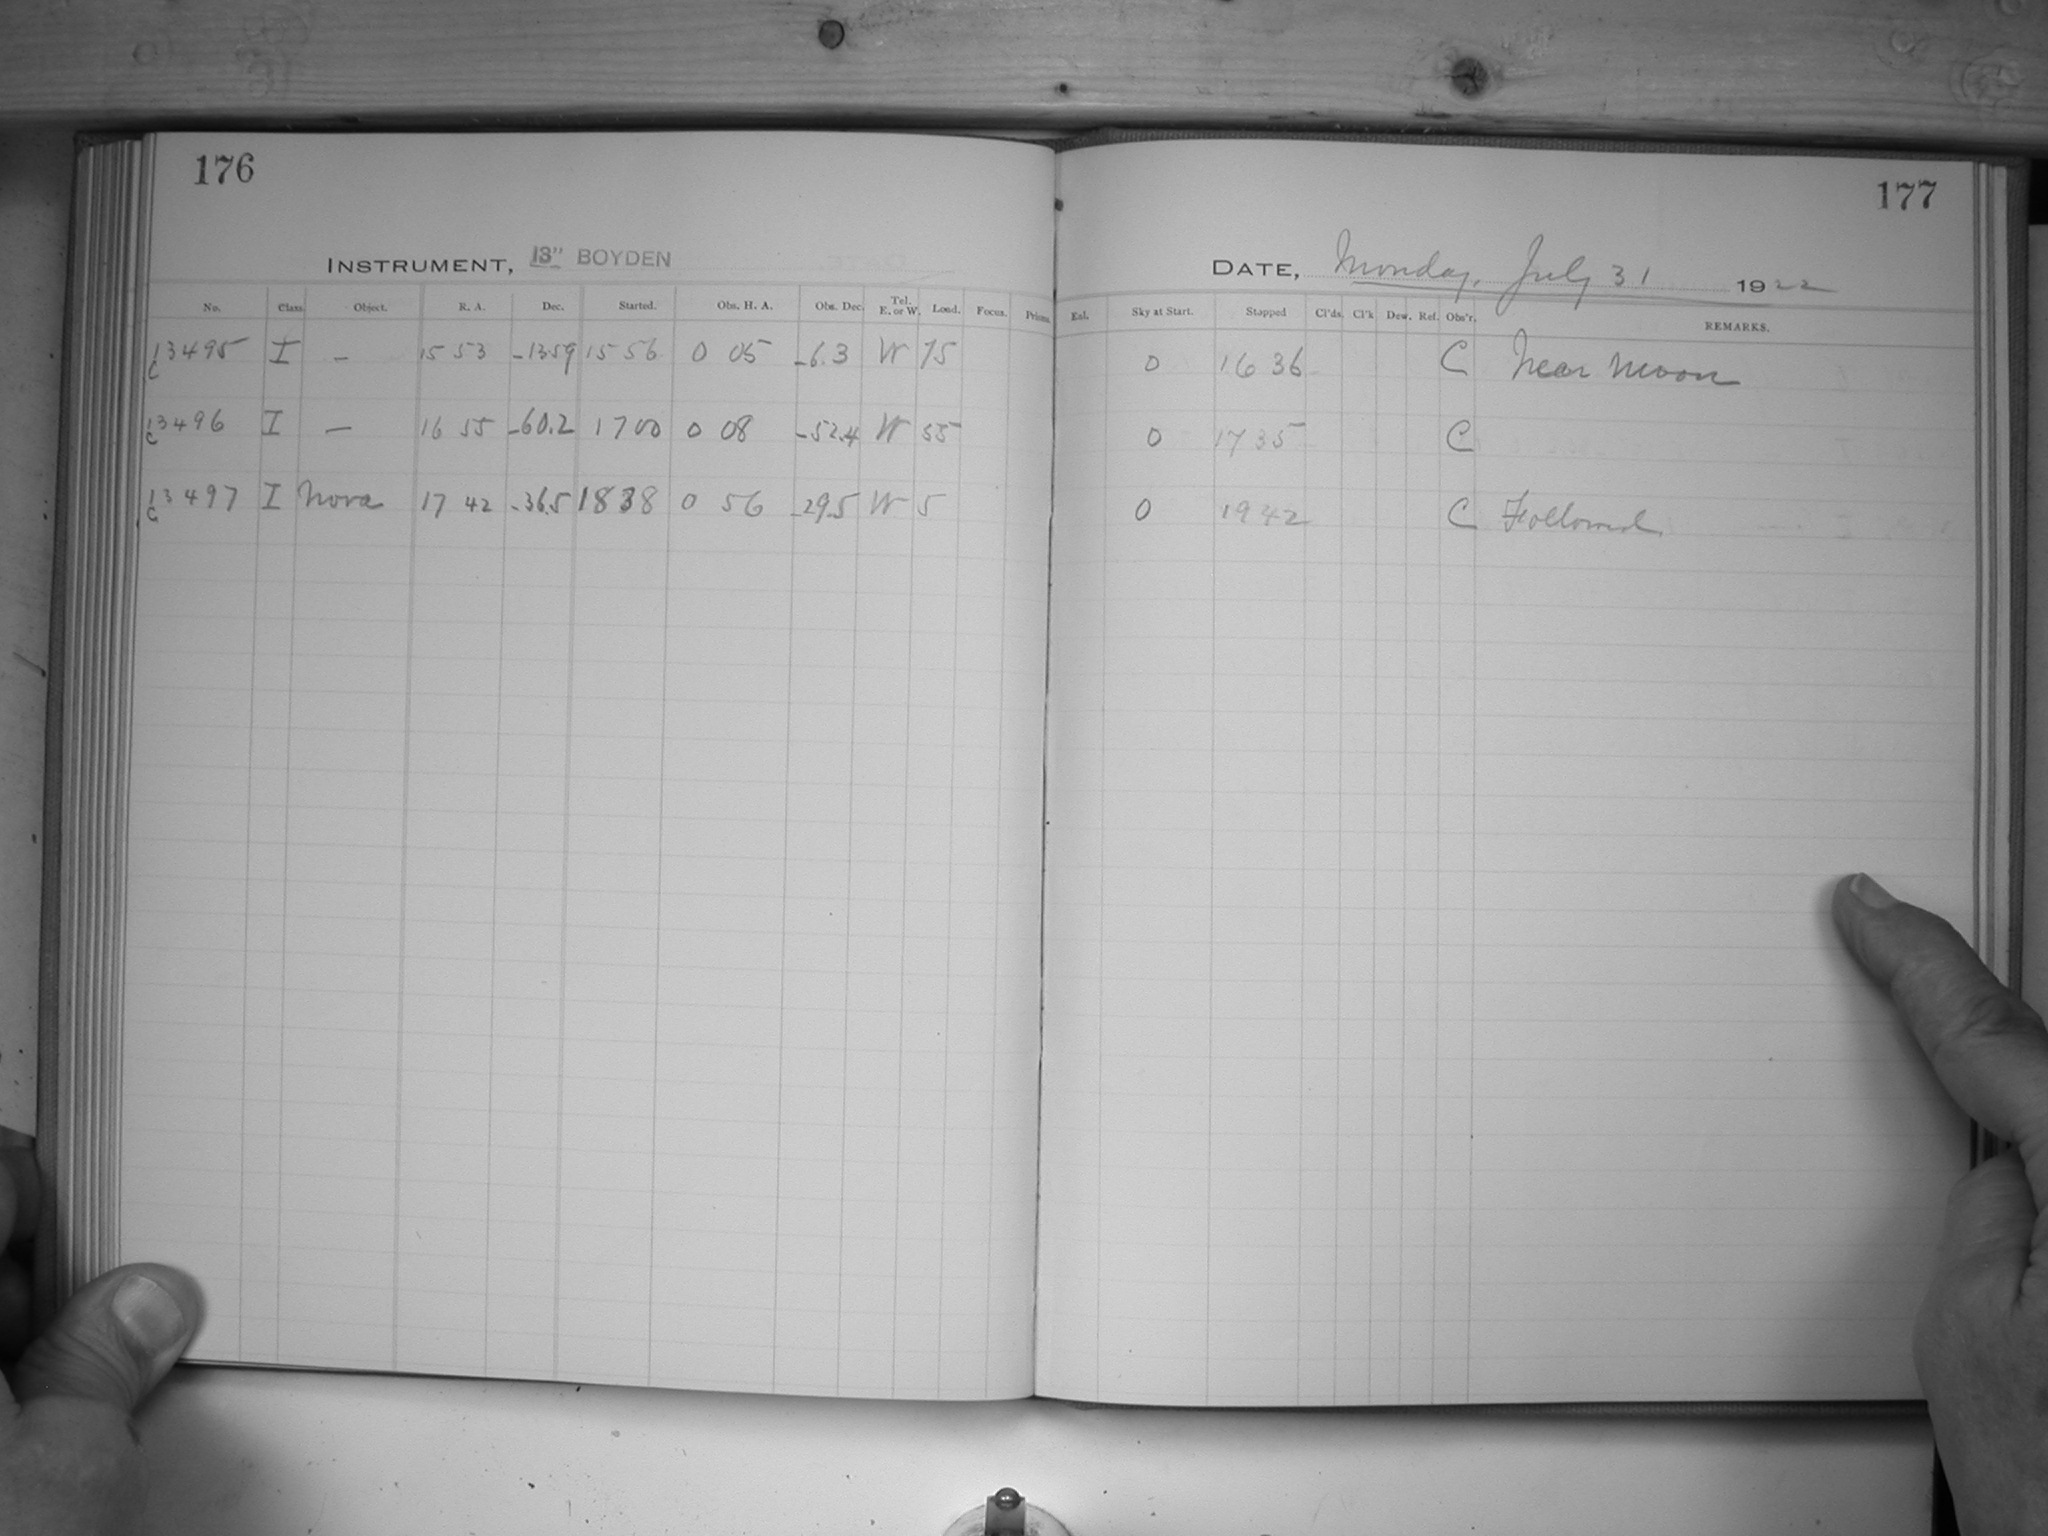 176
INSTRUMENT, 13" BOYDEN
No. Class Object. R. A. Dec. Started. Obs. H. A. Obs. Dec. Tel. E. or W. Load. Focus. Prisms.
C 13495 I — 15 53 -13.59 15 56 0 05 -6.3 W 75
C 13496 I — 16 55 -60.2 17 00 0 08 -52.4 W 55
C 13497 I Nova 17 42 -36.5 18 38 0 56 -29.5 W 5
177
DATE, Monday, July 31 1922
Enl. Sky at Start. Stopped Cl'ds. Cl'k Dew. Ref. Obs'r. REMARKS.
0 16 36 C Near Moon
0 17 35 C
0 19 42 C Followed.